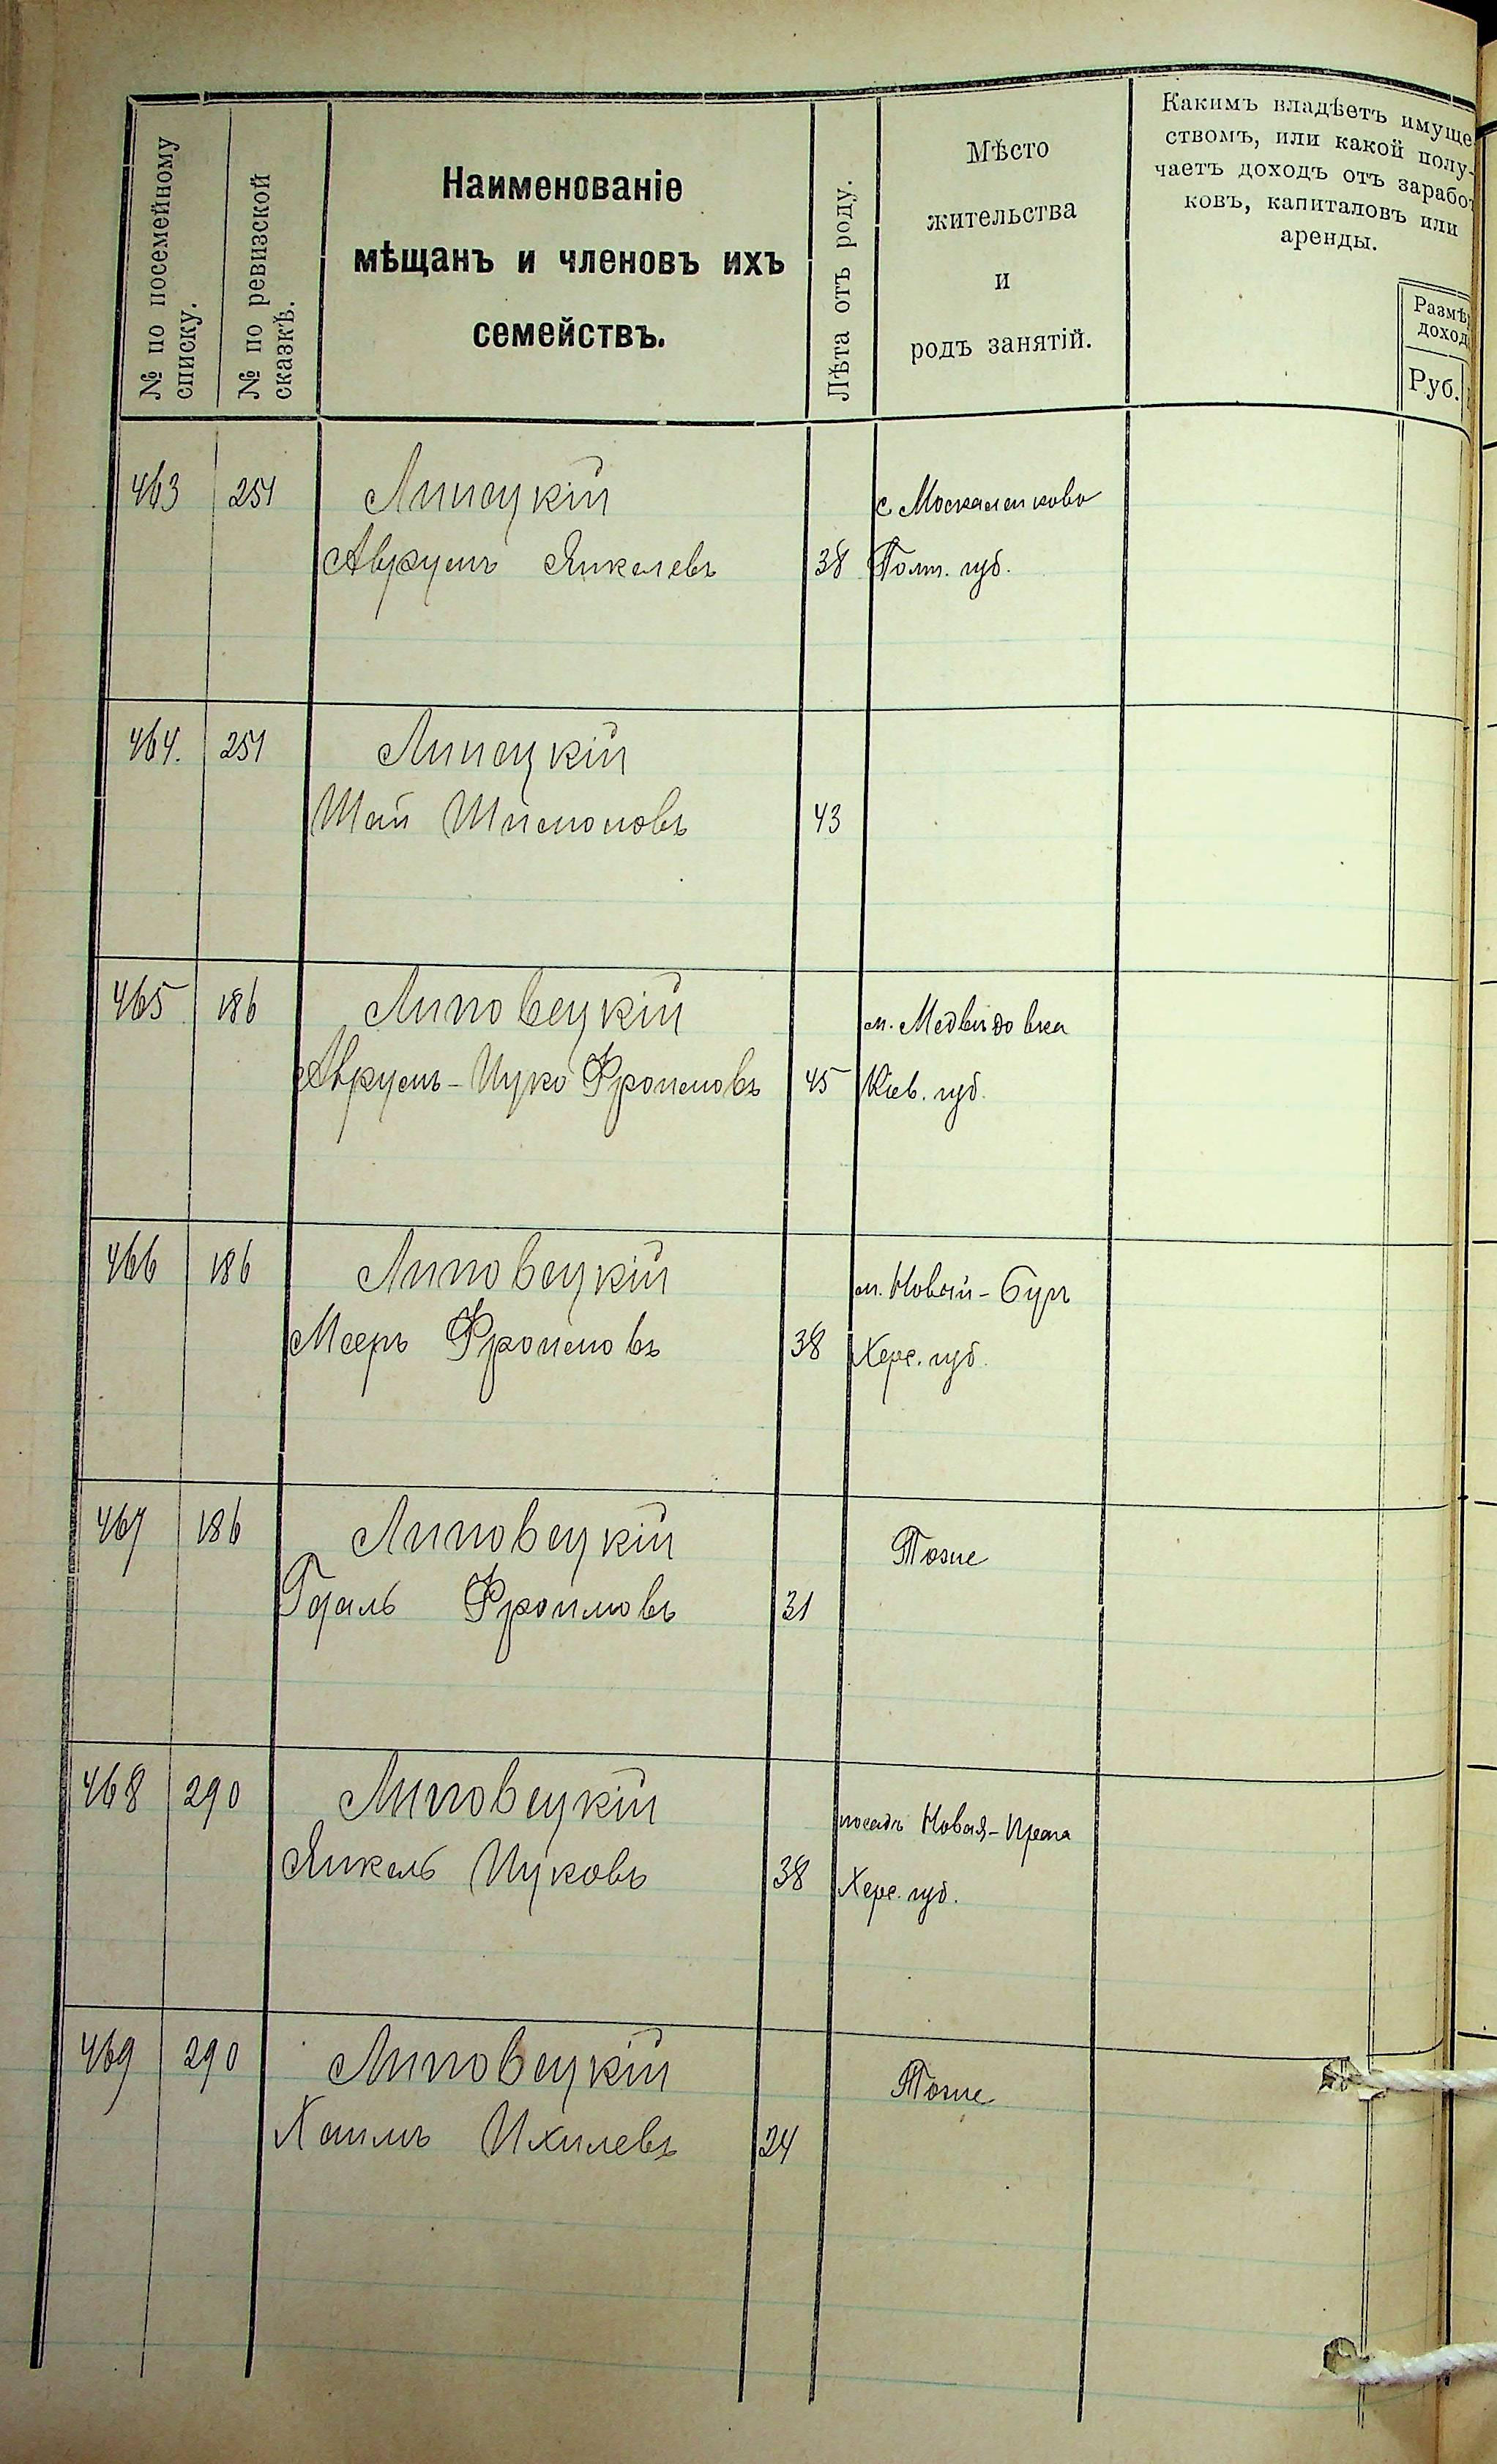 № по посемейному
списку.
№ по ревизской
сказкѣ.
Наименованіе
мѣщанъ и членовъ ихъ
семействъ.
Лѣта отъ роду.
Мѣсто
жительства
и
родъ занятій.
Какимъ владѣетъ имуще
ствомъ, или какой полу-
чаетъ доходъ отъ зарабо
ковъ, капиталовъ или
аренды.
Размѣ
доход
Руб.
463 251 Липецкій с Москаленково
Аврумъ Янкелевъ 38 Полт. губ.
464. 251 Липецкій
Шай Шимоновъ 43
465 186 Липовецкій м. Медвидовка
Аврумъ-Ицко Фроимовъ 45 Кіев. губ.
466 186 Липовецкій м. Новый-Бугъ
Мееръ Фроимовъ 38 Херс. губ.
467 186 Липовецкій Тоже
Гдаль Фроимовъ 31
468 290 Липовецкій посадъ Новая-Прага
Янкель Ицковъ 38 Херс. губ.
469 290 Липовецкій Тоже
Хаимъ Ихилевъ 24